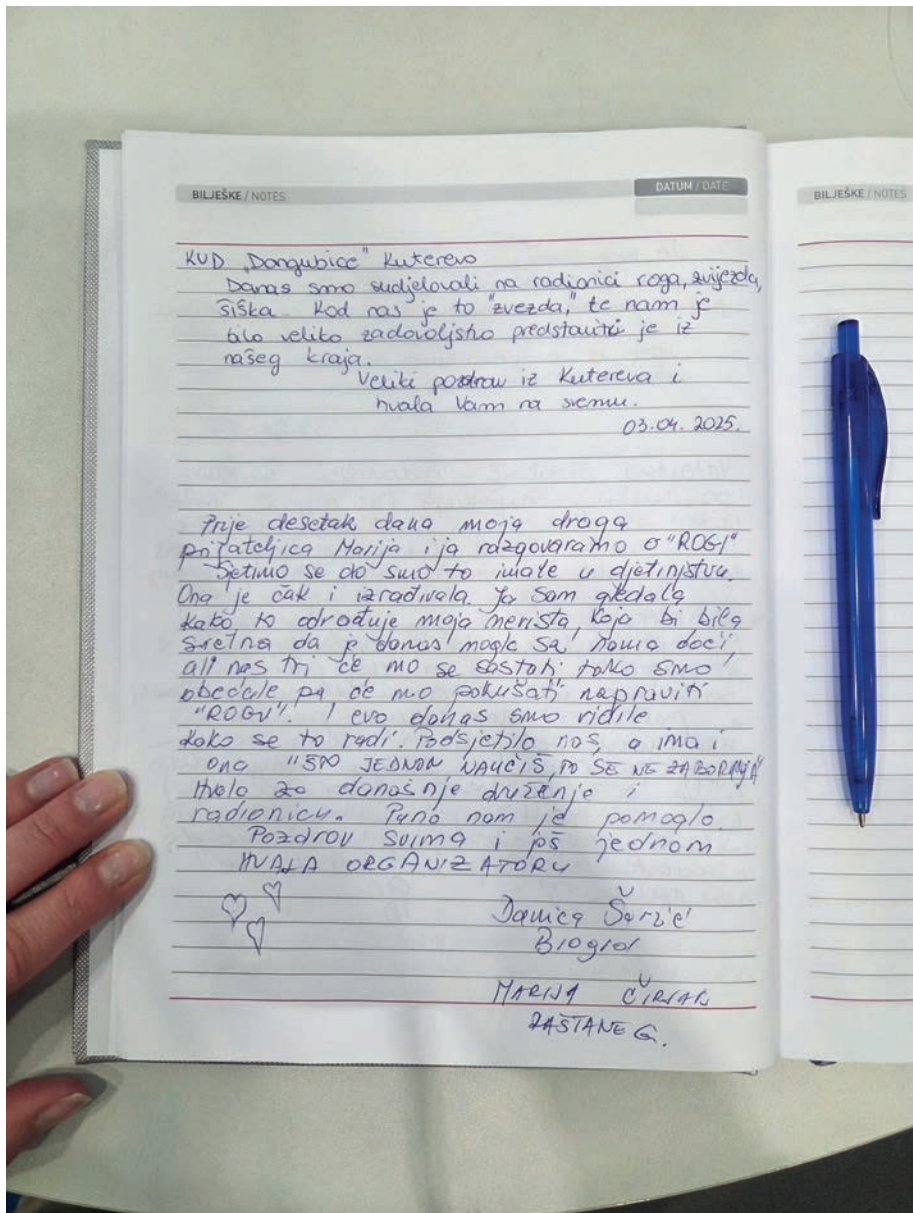 BILJEŠKE / NOTES
DATUM / DATE
BILJEŠKE / NOTES
KUD "Dangubice" Kuterevo
Danas smo sudjelovali na radionici roga, zvijezda,
šiška. Kod nas je to "zvezda," te nam je
bilo veliko zadovoljstvo predstaviti je iz
našeg kraja.
Veliki pozdrav iz Kutereva i
hvala Vam na svemu.
03.04. 2025.
Prije desetak dana moja draga
prijateljica Marija i ja razgovaramo o "ROGI"
Sjetimo se da smo to imale u djetinjstvu.
Ona je čak i izrađivala. Ja sam gledala
kako to odrađuje moja nevista, koja bi bila
sretna da je danas mogla sa nama doći,
ali nas tri će mo se sastati tako smo
obećale pa će mo pokušati napraviti
"ROGU". I evo danas smo vidile
kako se to radi. Podsjetilo nas, a ima i
ona "ŠTO JEDNOM NAUČIŠ, TO SE NE ZABORAVJA"
Hvala za današnje druženje i
radionicu. Puno nam je pomoglo.
Pozdrav svima i još jednom
HVALA ORGANIZATORU
Danica Šarić
Biograd
MARIJA
G.